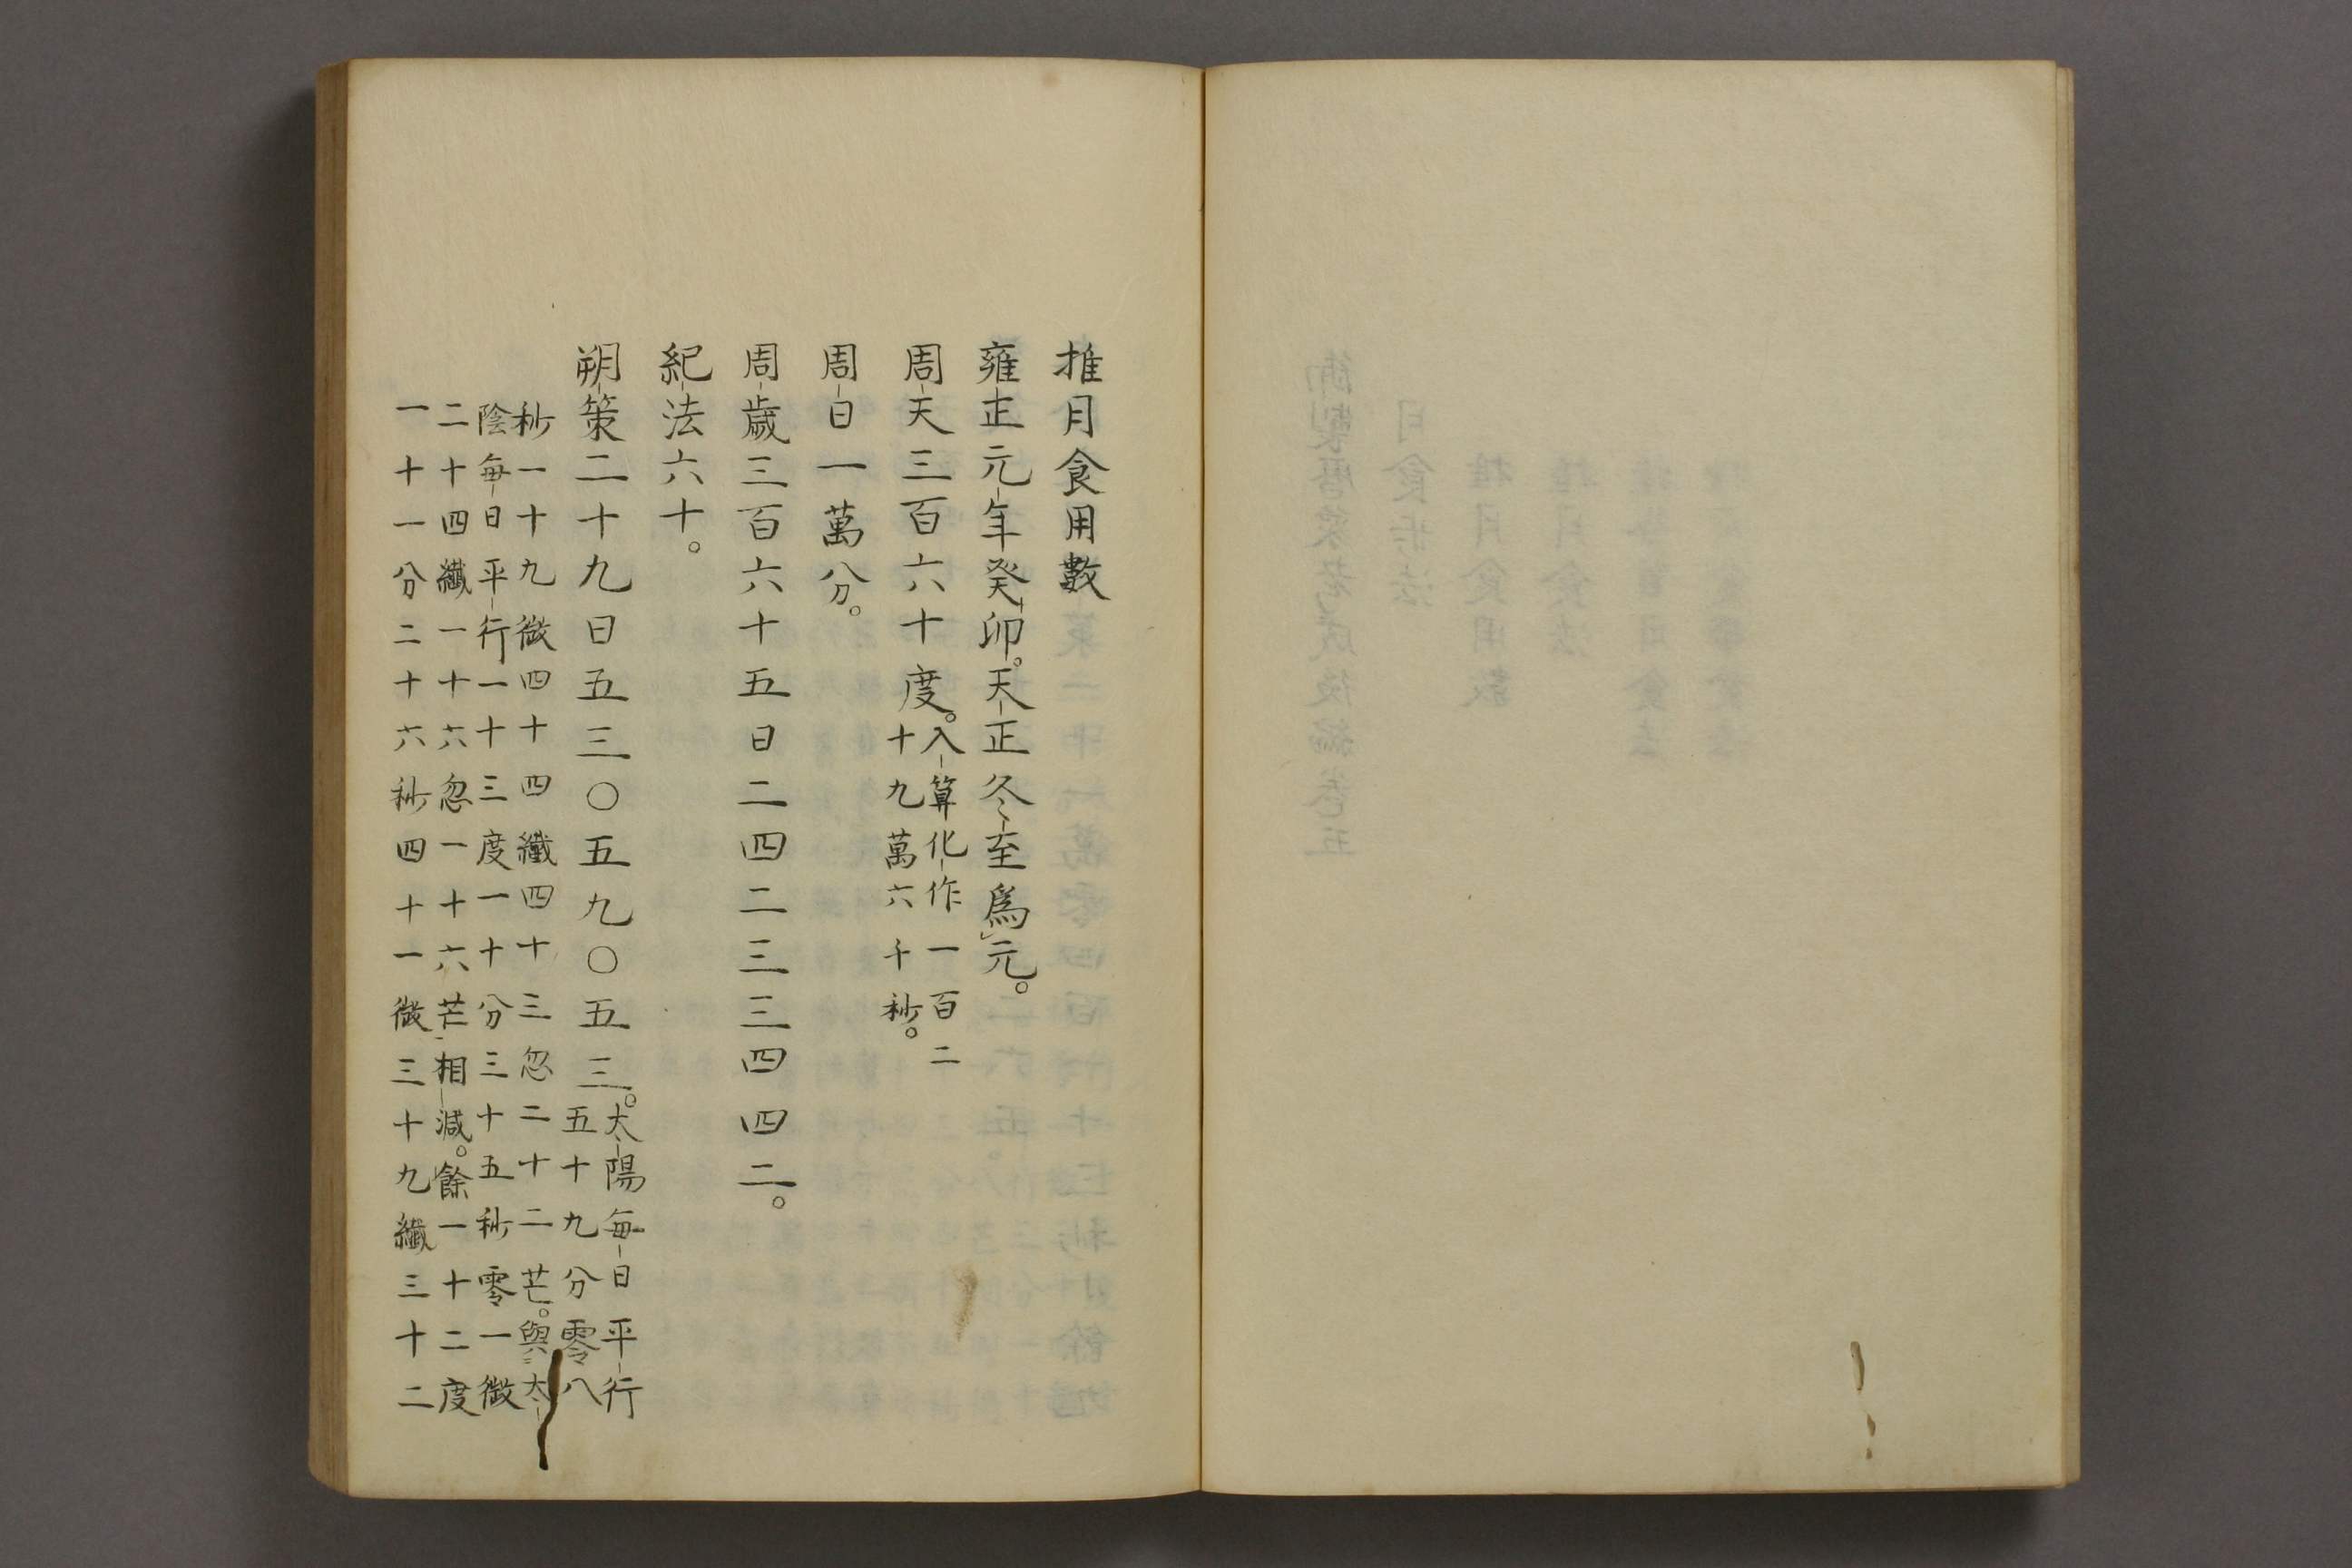 推月食用數
雍正元年癸卯。天正冬至爲元。
周天三百六十度。入算化作一百二
十九萬六千秒。
周日一萬分。
周歲三百六十五日二四二三三四四二。
紀法六十。
朔策二十九日五三〇五九〇五三。太陽每日平行
五十九分零八
秒一十九微四十四纖四十三忽二十二芒。與太
陰每日平行一十三度一十分三十五秒零一微
二十四纖一十六忽一十六芒相減。餘一十二度
一十一分二十六秒四十一微三十九纖三十二